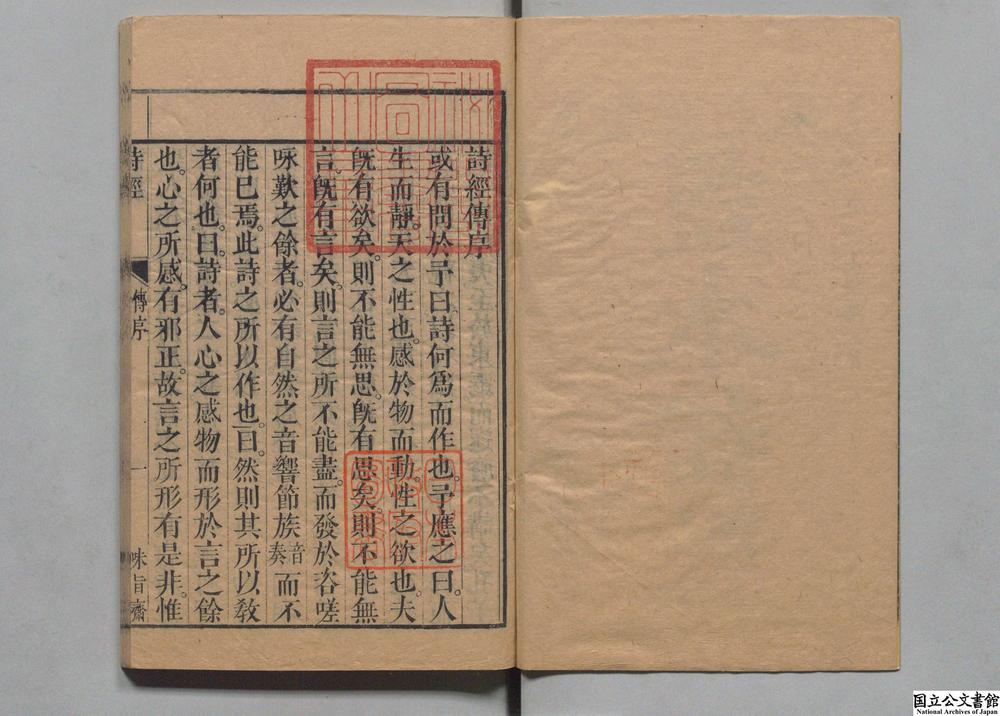 詩經傳序
或有問於予曰詩何爲而作也。予應之曰。人
生而靜。天之性也。感於物而動。性之欲也。夫
既有欲矣。則不能無思。既有思矣。則不能無
言。既有言矣。則言之所不能盡。而發於咨嗟
咏歎之餘者。必有自然之音響節族音奏而不
能已焉。此詩之所以作也。曰。然則其所以敎
者何也。曰。詩者。人心之感物而形於言之餘
也。心之所感。有邪正。故言之所形有是非。惟
詩經 傳序 一 味旨齋
国立公文書館
National Archives of Japan